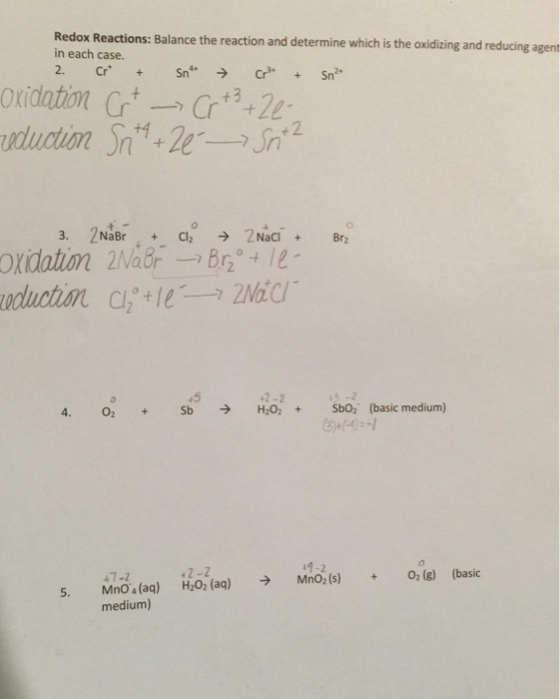 Redox Reactions: Balance the reaction and determine which is the oxidizing and reducing agent
in each case.
2. Cr⁺ + Sn⁴⁺ → Cr³⁺ + Sn²⁺
oxidation Cr⁺ → Cr⁺³ + 2e⁻
reduction Sn⁺⁴ + 2e⁻ → Sn⁺²
+ - 0 + - 0
3. 2NaBr + Cl₂ → 2NaCl + Br₂
oxidation 2Na⁺Br⁻ → Br₂⁰ + 1e⁻
reduction Cl₂⁰ + 1e⁻ → 2Na⁺Cl⁻
0 +5 +2 -2 +3 -2
4. O₂ + Sb → H₂O₂ + SbO₂⁻ (basic medium)
(3)+(-4)=-1
+7 -2 +2 -2 +4 -2 0
5. MnO⁻₄ (aq) H₂O₂ (aq) → MnO₂ (s) + O₂ (g) (basic
medium)